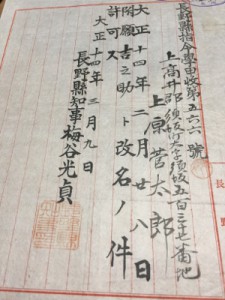 長野縣指令學甲收第五六六號
上高井郡須坂町大字須坂五百三十七番地
上原菅太郎
大正十四年二月廿八日
附願吉之助ト改名ノ件
許可ス
大正十四年三月九日
長野縣知事梅谷光貞
長野